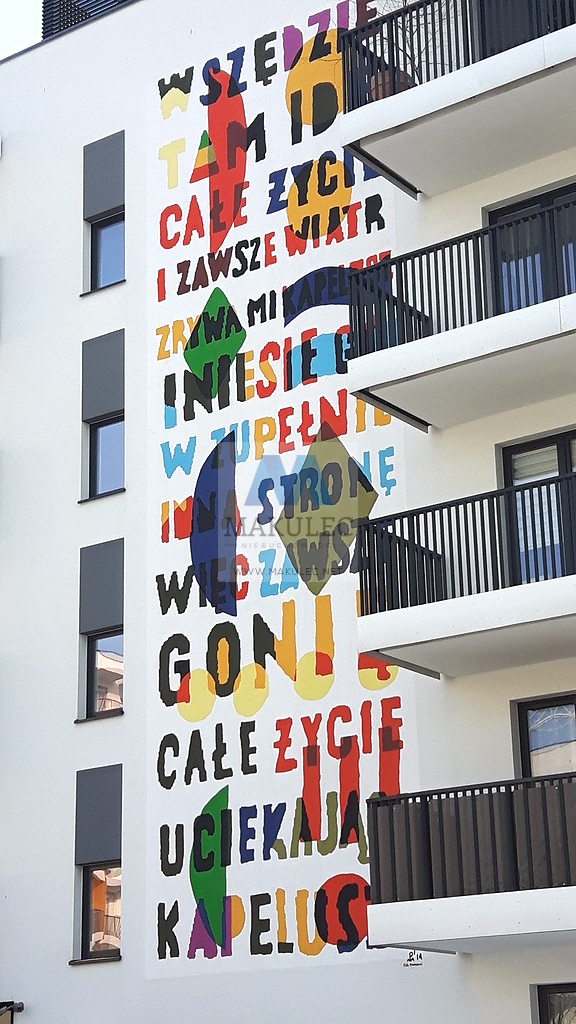 WSZĘDZIE
TAM IDĘ
CAŁE ŻYCIE
I ZAWSZE WIATR
ZRYWA MI KAPELUSZ
I NIESIE GO
W ZUPEŁNIE
INNĄ STRONĘ
WIĘC ZAWSZE
GONIĘ
CAŁE ŻYCIE
UCIEKAJĄCY
KAPELUSZ
MAKULEC
NIERUCHOMOŚCI
WWW.MAKULEC.NET